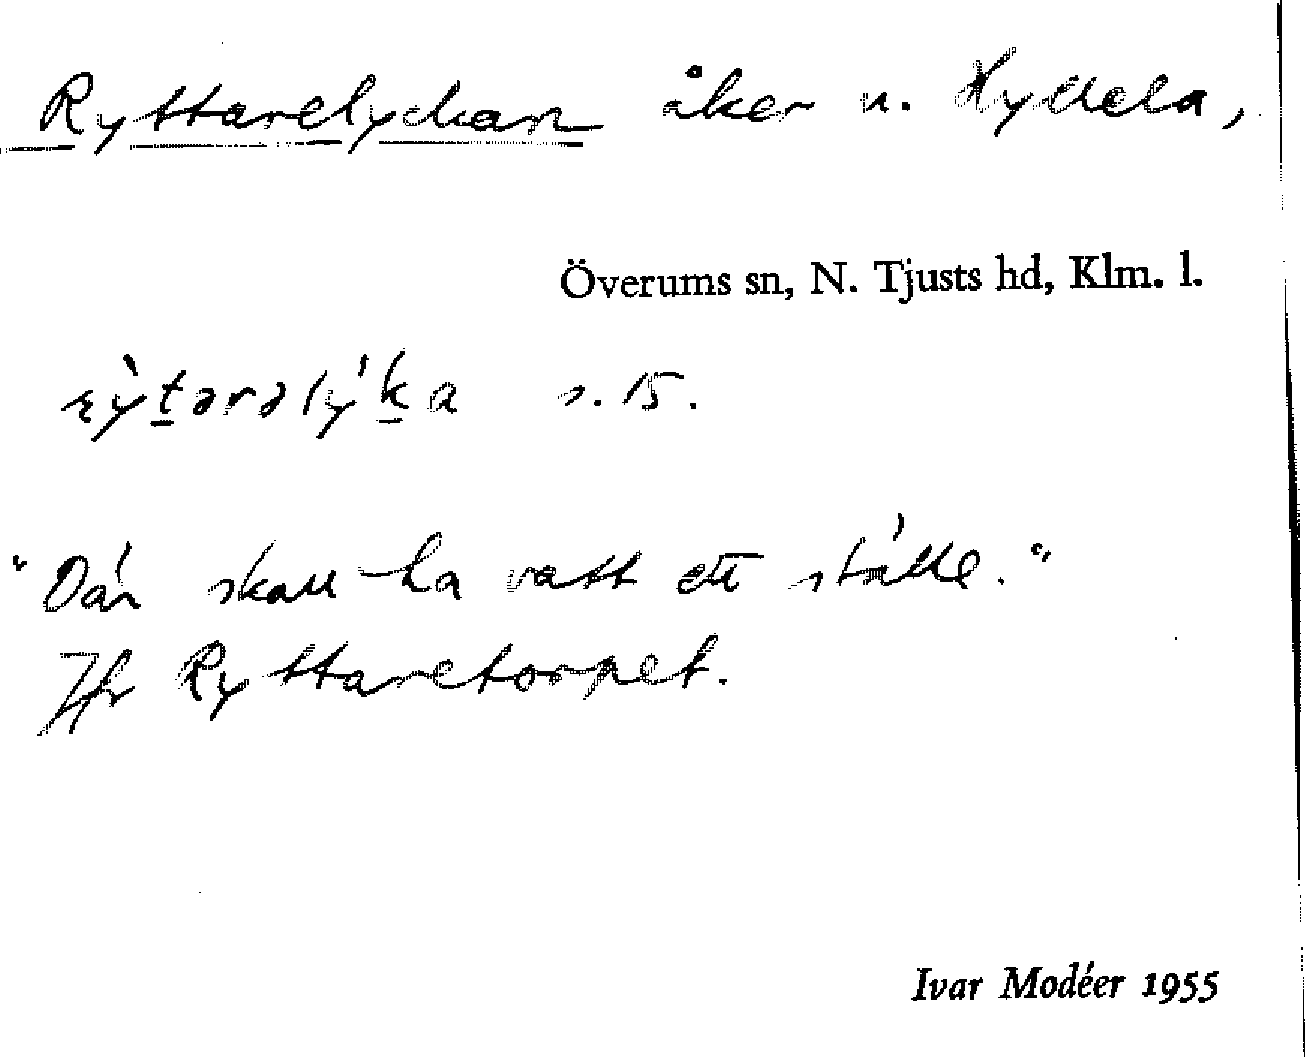 Ryttarelyckan åker u. Hyddela,
Överums sn, N. Tjusts hd, Klm. l.
rỳtərəlýka s. 15.
"Där skall ha vatt ett ställe."
Jfr Ryttaretorpet.
Ivar Modéer 1955